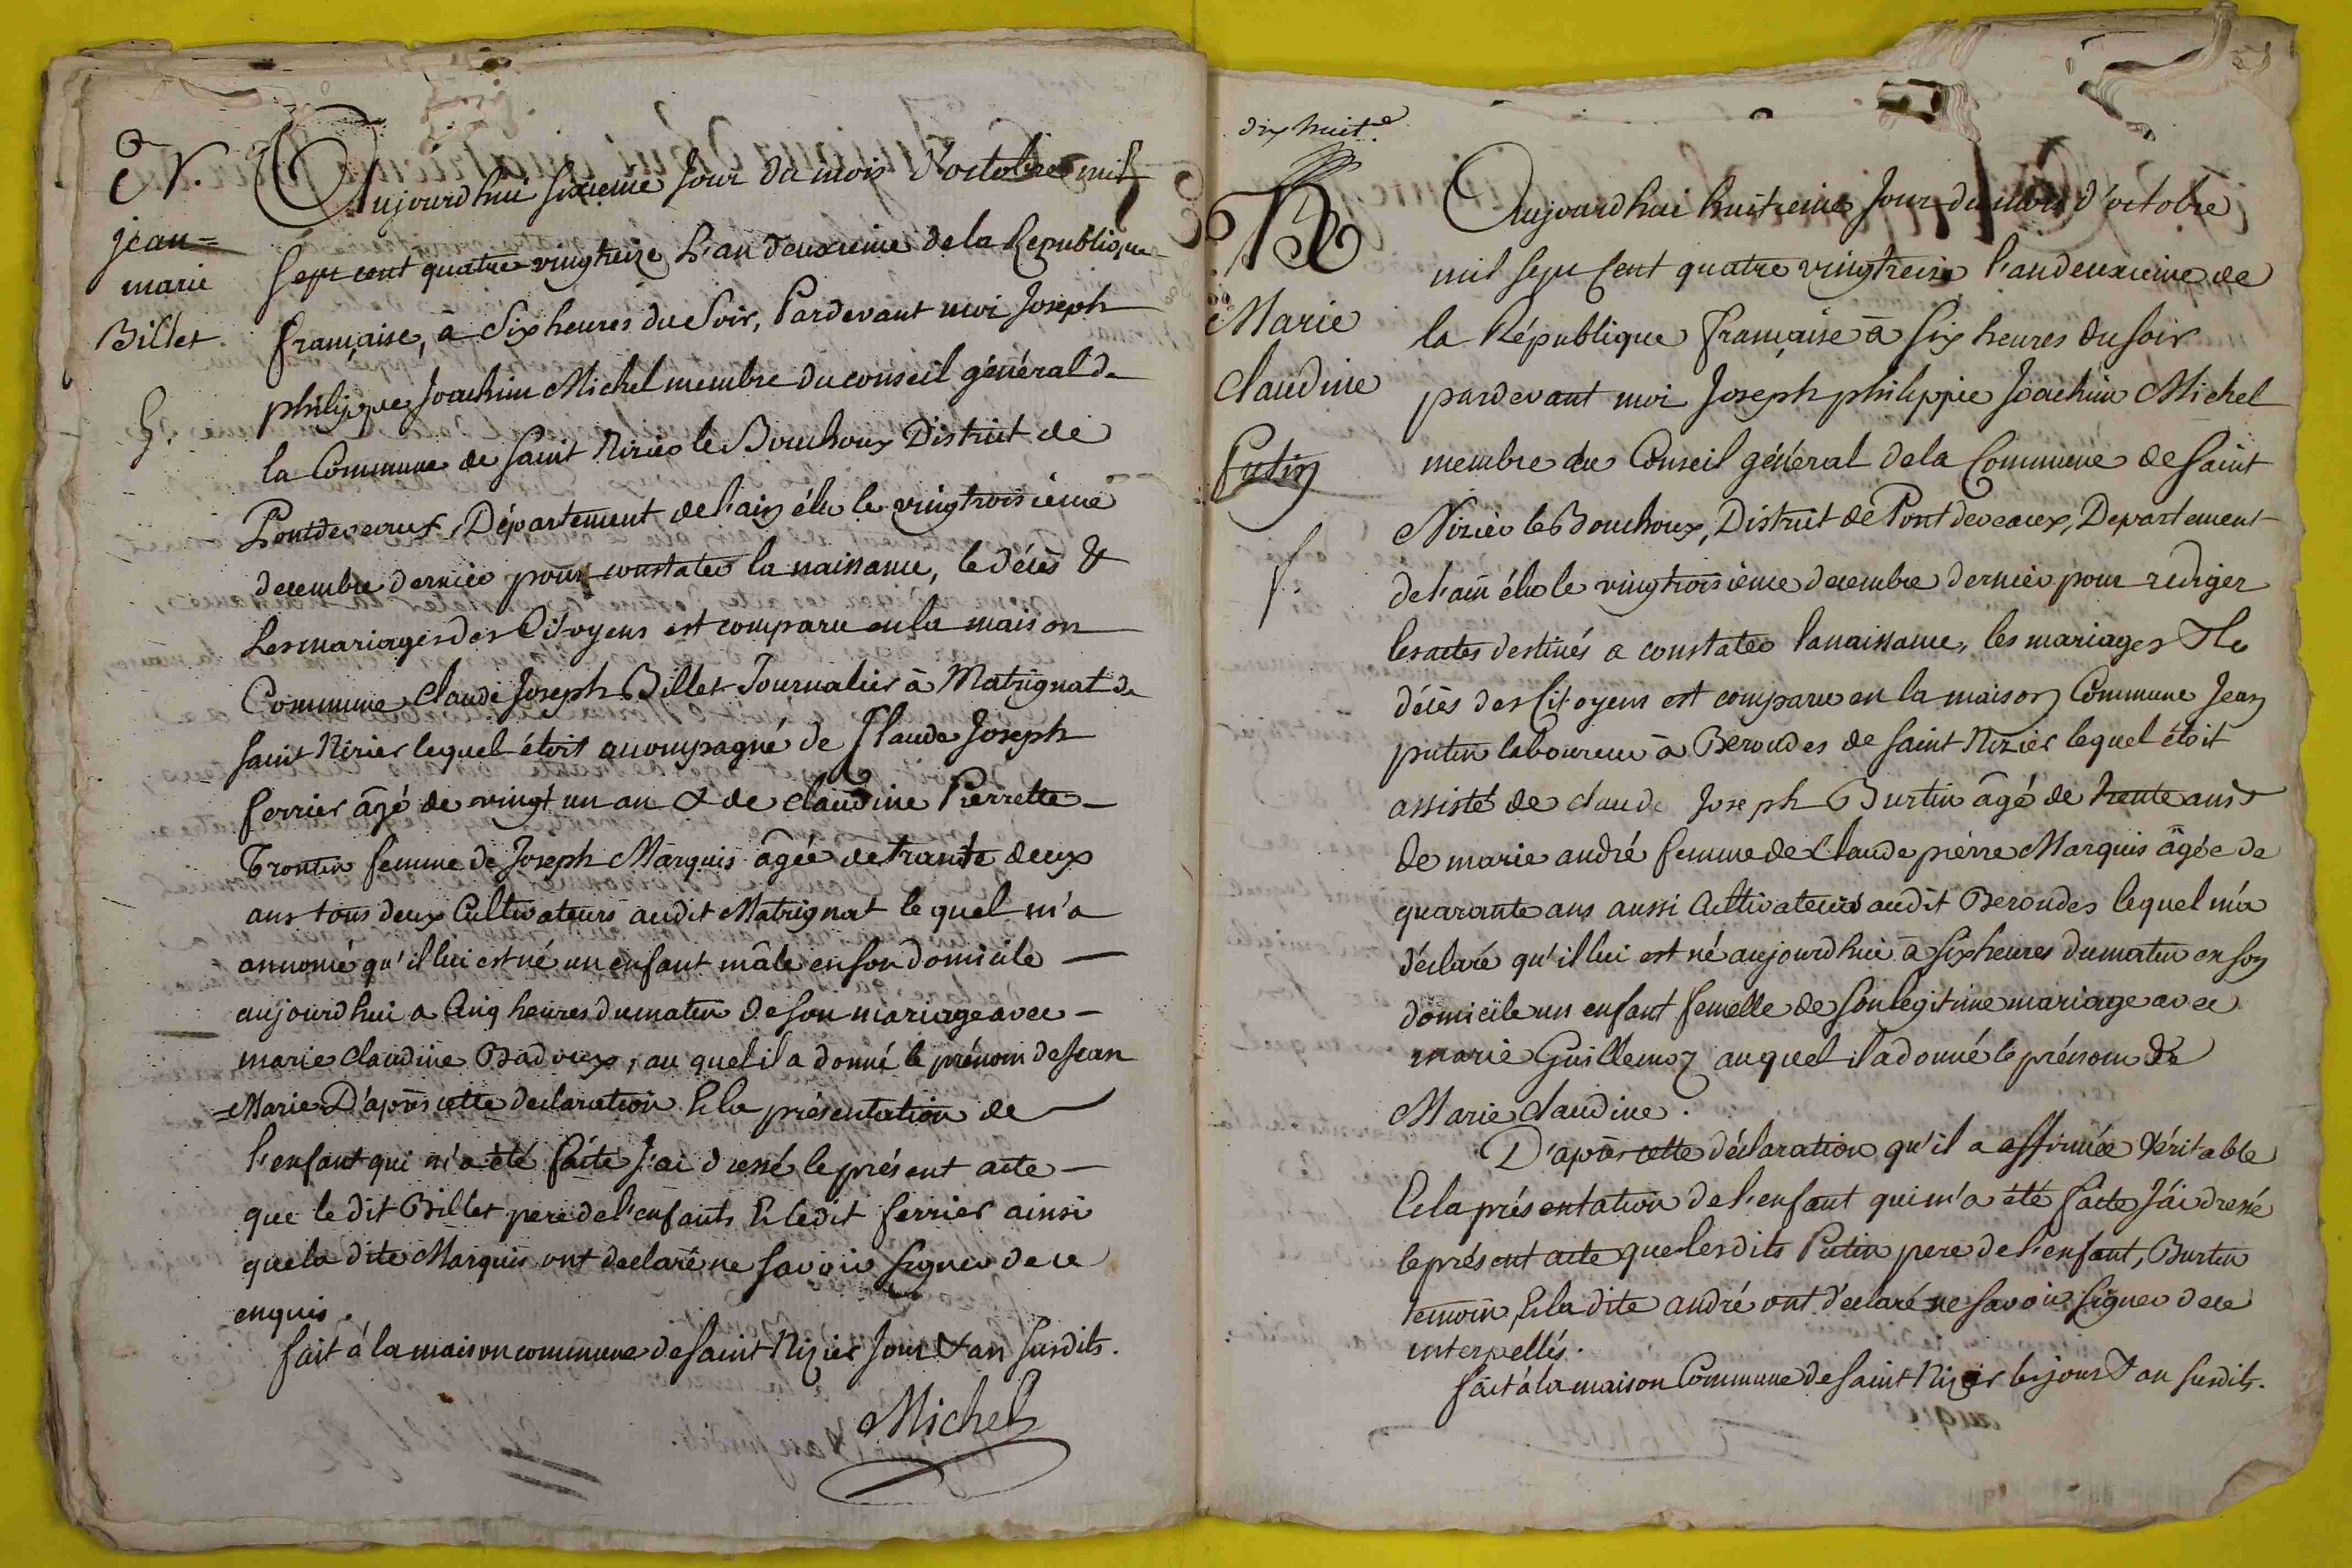 N.
jean=
marie
Billet
G.
Aujourd'hui sixieme jour du mois d'octobre mil
sept cent quatre vingtreize L'an deuxieme de la Republique
française, à Six heures du Soir, Pardevant moi Joseph
philippe Joachim Michel membre du conseil général de
la Commune de Saint Nizier le Bouchoux District de
Pontdevaux, Département de l'ain élu le vingtroisieme
decembre dernier pour constater la naissance, le décès &
Les mariages des Citoyens est comparu en la maison
Commune Claude Joseph Billet Journalier à Matrignat de
Saint Nizier lequel étoit accompagné de Claude Joseph
ferrier âgé de vingt un an & de claudine Pierrette
Trontin femme de Joseph Marquis âgée de trante deux
ans tous deux Cultivateurs audit Matrignat le quel m'a
annoncé qu'il lui est né un enfant mâle en son domicile
aujourd'hui a Cinq heures du matin de son mariage avec
marie claudine Badoux, au quel il a donné le prénom de Jean
=Marie D'après cette declaration & la présentation de
l'enfant qui m'a été faite J'ai dressé le présent acte
que le dit Billet pere de l'enfant, & ledit ferrier ainsi
que la dite Marquis ont declaré ne savoir signer de ce
enquis.
fait à la maison commune de Saint Nizier Jour & an susdits.
Michel
dix huit.e
N
Marie
Claudine
Putin
f.
Aujourd'hui huitieme Jour du mois d'octobre
mil sept cent quatre vingtreize l'an deuxieme de
la République française à six heures du soir
pardevant moi Joseph philippe Joachim Michel
membre du Conseil général de la Commune de Saint
Nizier le Bouchoux, District de Pont devaux, Departement
de l'ain élu le vingtroisieme decembre dernier pour rediger
les actes destinés a constater la naissance, les mariages & le
décès des Citoyens est comparu en la maison Commune Jean
putin laboureur à Beroudes de Saint Nizier lequel étoit
assisté de claude Joseph Burtin âgé de trente ans &
de marie andré femme de Claude pierre Marquis âgée de
quarante ans aussi Cultivateurs audit Beroudes lequel m'a
déclaré qu'il lui est né aujourd'hui à six heures du matin en son
domicile un enfant femelle de son legitime mariage avec
marie Guillemoz auquel il a donné le prénom de
Marie claudine.
D'après cette déclaration qu'il a affirmée Véritable
& la présentation de l'enfant qui m'a été faite J'ai dressé
le présent acte que lesdits Putin pere de l'enfant, Burtin
temoin, & la dite andré ont déclaré ne savoir signer de ce
interpellés.
fait à la maison Commune de Saint Nizier les jour & an susdits.